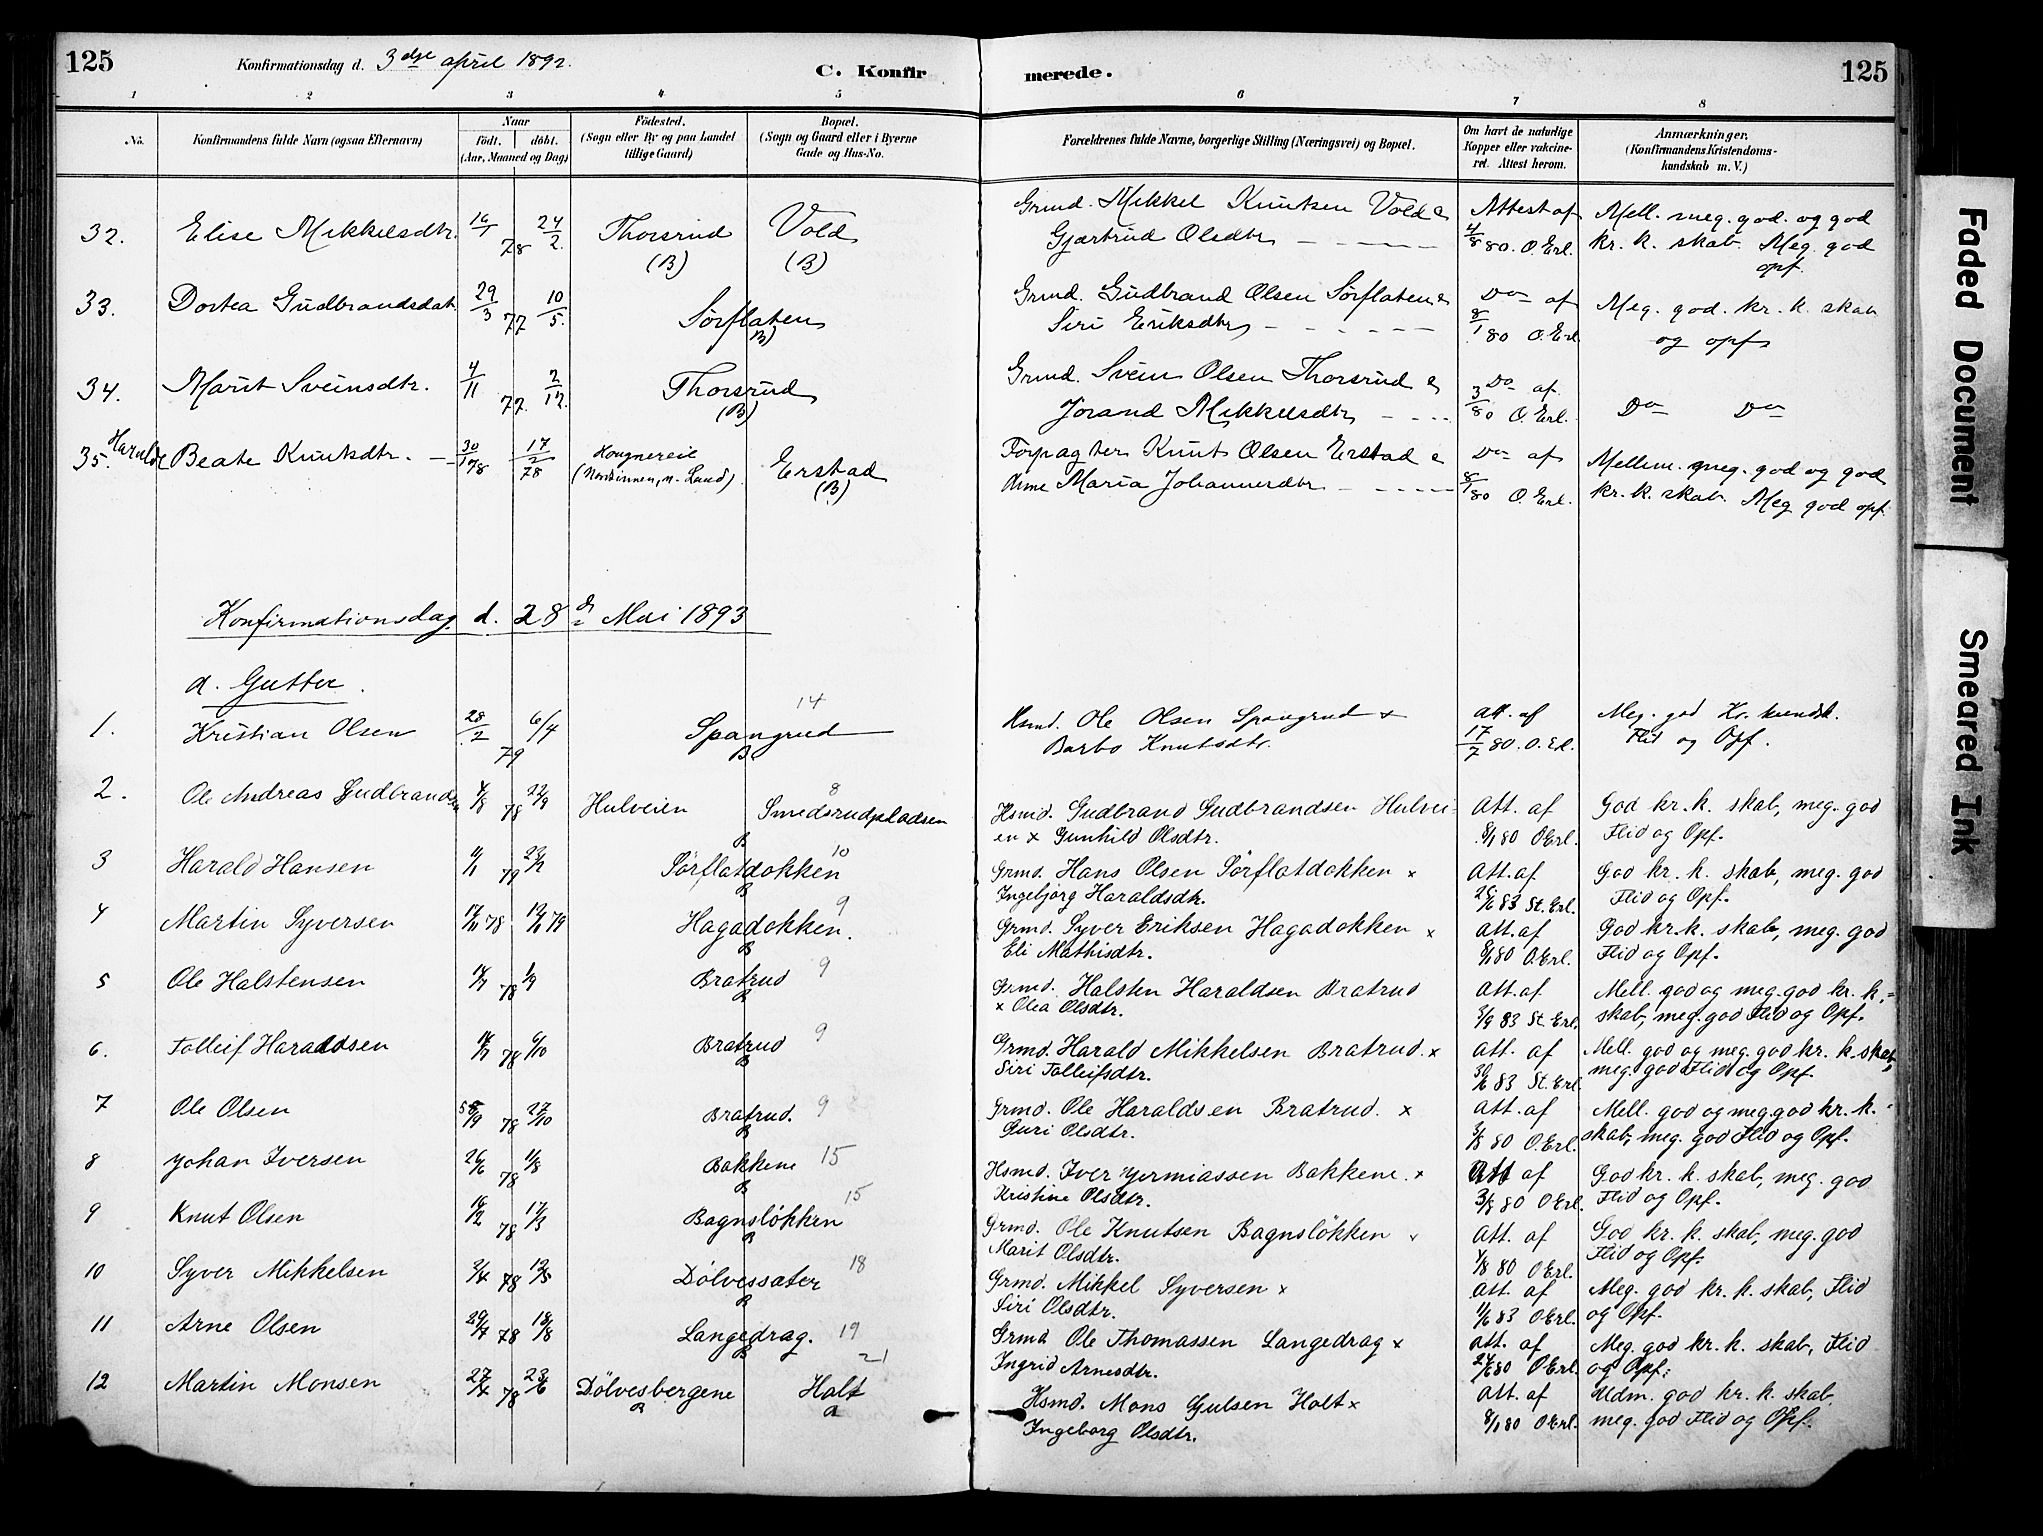 125
Konfirmationsdag d. 3dje april 1892.
C. Konfir
merede.
125
1 2 3 4 5 6 7 8
No.
Konfirmandens fulde Navn (ogsaa Efternavn)
Naar
födt. döbt.
(Aar, Maaned og Dag)
Födested.
(Sogn eller By og paa Landet
tillige Gaard)
Bopæl.
(Sogn og Gaard eller i Byerne
Gade og Hus-No.
Forældrenes fulde Navne, borgerlige Stilling (Næringsvei) og Bopæl.
Om havt de naturlige
Kopper eller vakcine-
ret. Attest herom.
Anmærkninger.
(Konfirmandens Kristendoms-
kundskab m. V.)
32. Elise Mikkelsdtr. 78 24/2 Thorsrud (B) Vold (B) Grmd. Mikkel Knutsen Vold &
Gjertrud Olsdtr. Attest af 4/8 80. O. Erl. Mell. meg. god. og god
kr. k. skab. Meg. god
opf.
33. Dortea Gudbrandsdat. 29/3 77 10/5. Sørflaten (B) Grmd. Gudbrand Olsen Sørflaten &
Siri Eriksdtr. Do af 8/1 80 O. Erl. Meg. god. kr. k. skab
og opf.
34. Marit Sveinsdtr. 4/11 77. 2/12. Thorsrud (B) Grmd. Svein Olsen Thorsrud &
Jorand Mikkelsdtr. Do af 3/80 O. Erl. Do Do
35. Harald Beate Knutsdtr. 30/1 78 17/2 78 Hougnereie
(Nordsinnen, n. Land). Erstad (B) Forpagter Knut Olsen Erstad &
Anne Maria Johannesdtr. Do af 8/1 80 O. Erl. Mellem. meg. god og god
kr. k. skab. Meg god opf.
Konfirmationsdag d. 28d Mai 1893
a. Gutter.
1. Kristian Olsen 28/2 79 6/4 Spangrud B 14 Hsmd. Ole Olsen Spangrud x
Barbo Knutsdtr. Att. af 17/7 80. O. Erl. Meg. god Kr. kundsk.
Flid og Opf.
2. Ole Andreas Gudbrandsen 4/8 78 22/9 Hulveien Smedsrudpladsen B 8 Hsmd. Gudbrand Gudbrandsen Hulvei-
en x Gunhild Olsdtr. Att. af 8/1 80 O Erl. God kr. k. skab, meg. god
Flid og Opf.
3 Harald Hansen 79 23/2 Sørflatdokken B 10 Grmd. Hans Olsen Sørflatdokken x
Ingebjørg Haraldsdtr. Att. af 26/6 83 St. Erl. God kr. k. skab, meg. god
Flid og Opf.
4 Martin Syversen 78 79 Hagadokken. B 9 Grmd. Syver Eriksen Hagadokken x
Eli Mathisdtr. Att. af 8/1 80 O. Erl. God kr. k. skab, meg. god
Flid og Opf.
5 Ole Halstensen 78 1/9 Bratrud B 9 Grmd. Halsten Haraldsen Bratrud
x Olea Olsdtr. Att. af 3/9 83 St. Erl. Mell. god og meg. god kr. k.-
skab, meg. god Flid og Opf.
6. Tolleif Haraldsen 78 6/10 Bratrud B 9 Grmd. Harald Mikkelsen Bratrud. x
Siri Tolleifsdtr. Att. af 30/6 83 St. Erl. Mell. god og meg. god kr. k. skab,
meg. god Flid og Opf.
7 Ole Olsen 78 27/10 Bratrud. B 9 Grmd. Ole Haraldsen Bratrud. x
Guri Olsdtr. Att. af 3/8 80 O. Erl. Mell. god og meg. god kr. k.-
skab, meg. god Flid og Opf.
8 Johan Iversen 26/6 78 11/8 Bakkene B 15 Hsmd. Iver Yermiassen Bakkene. x
Kristine Olsdtr. Att af 3/8 80 O Erl. God kr. k. skab, meg. god
Flid og Opf.
9 Knut Olsen 16/2 78 17/3 Bagnsløkken B 15 Grmd. Ole Knutsen Bagnsløkken x
Marit Olsdtr. Att. af 1/8 80 O Erl. God kr. k. skab, meg. god
Flid og Opf.
10 Syver Mikkelsen 3/4 78 12/5 Dölvessæter B 18 Grmd. Mikkel Syversen x
Siri Olsdtr. Att. af 11/6 83 O Erl. Meg. god kr. k. skab, Flid
og Opf.
11 Arne Olsen 29/7 78 18/8 Langedrag. B 19 Grmd Ole Thomassen Langedrag x
Ingrid Arnesdtr. Att. af 24/6 80 O Erl. Meg. god kr. k. skab, Flid
og Opf.
12 Martin Monsen 27/4 78 23/6 Dölvesbergene B Holt B 21 Hsmd. Mons Gulsen Holt x
Ingeborg Olsdtr. Att. af 8/1 80 O Erl. Udm. god kr. k. skab,
meg. god Flid og Opf.
Faded Document
Smeared Ink